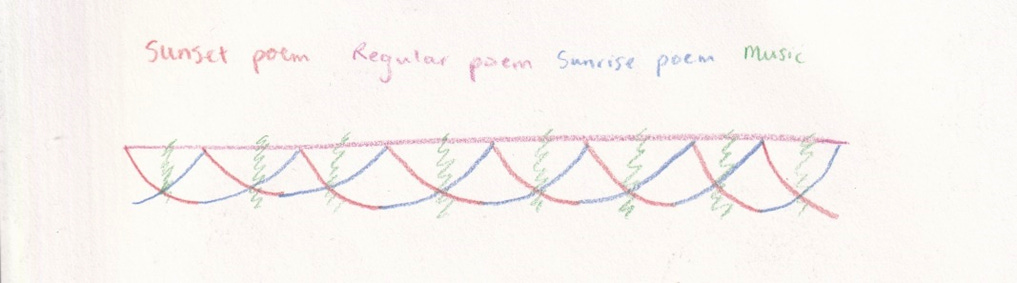 Sunset poem Regular poem Sunrise poem Music